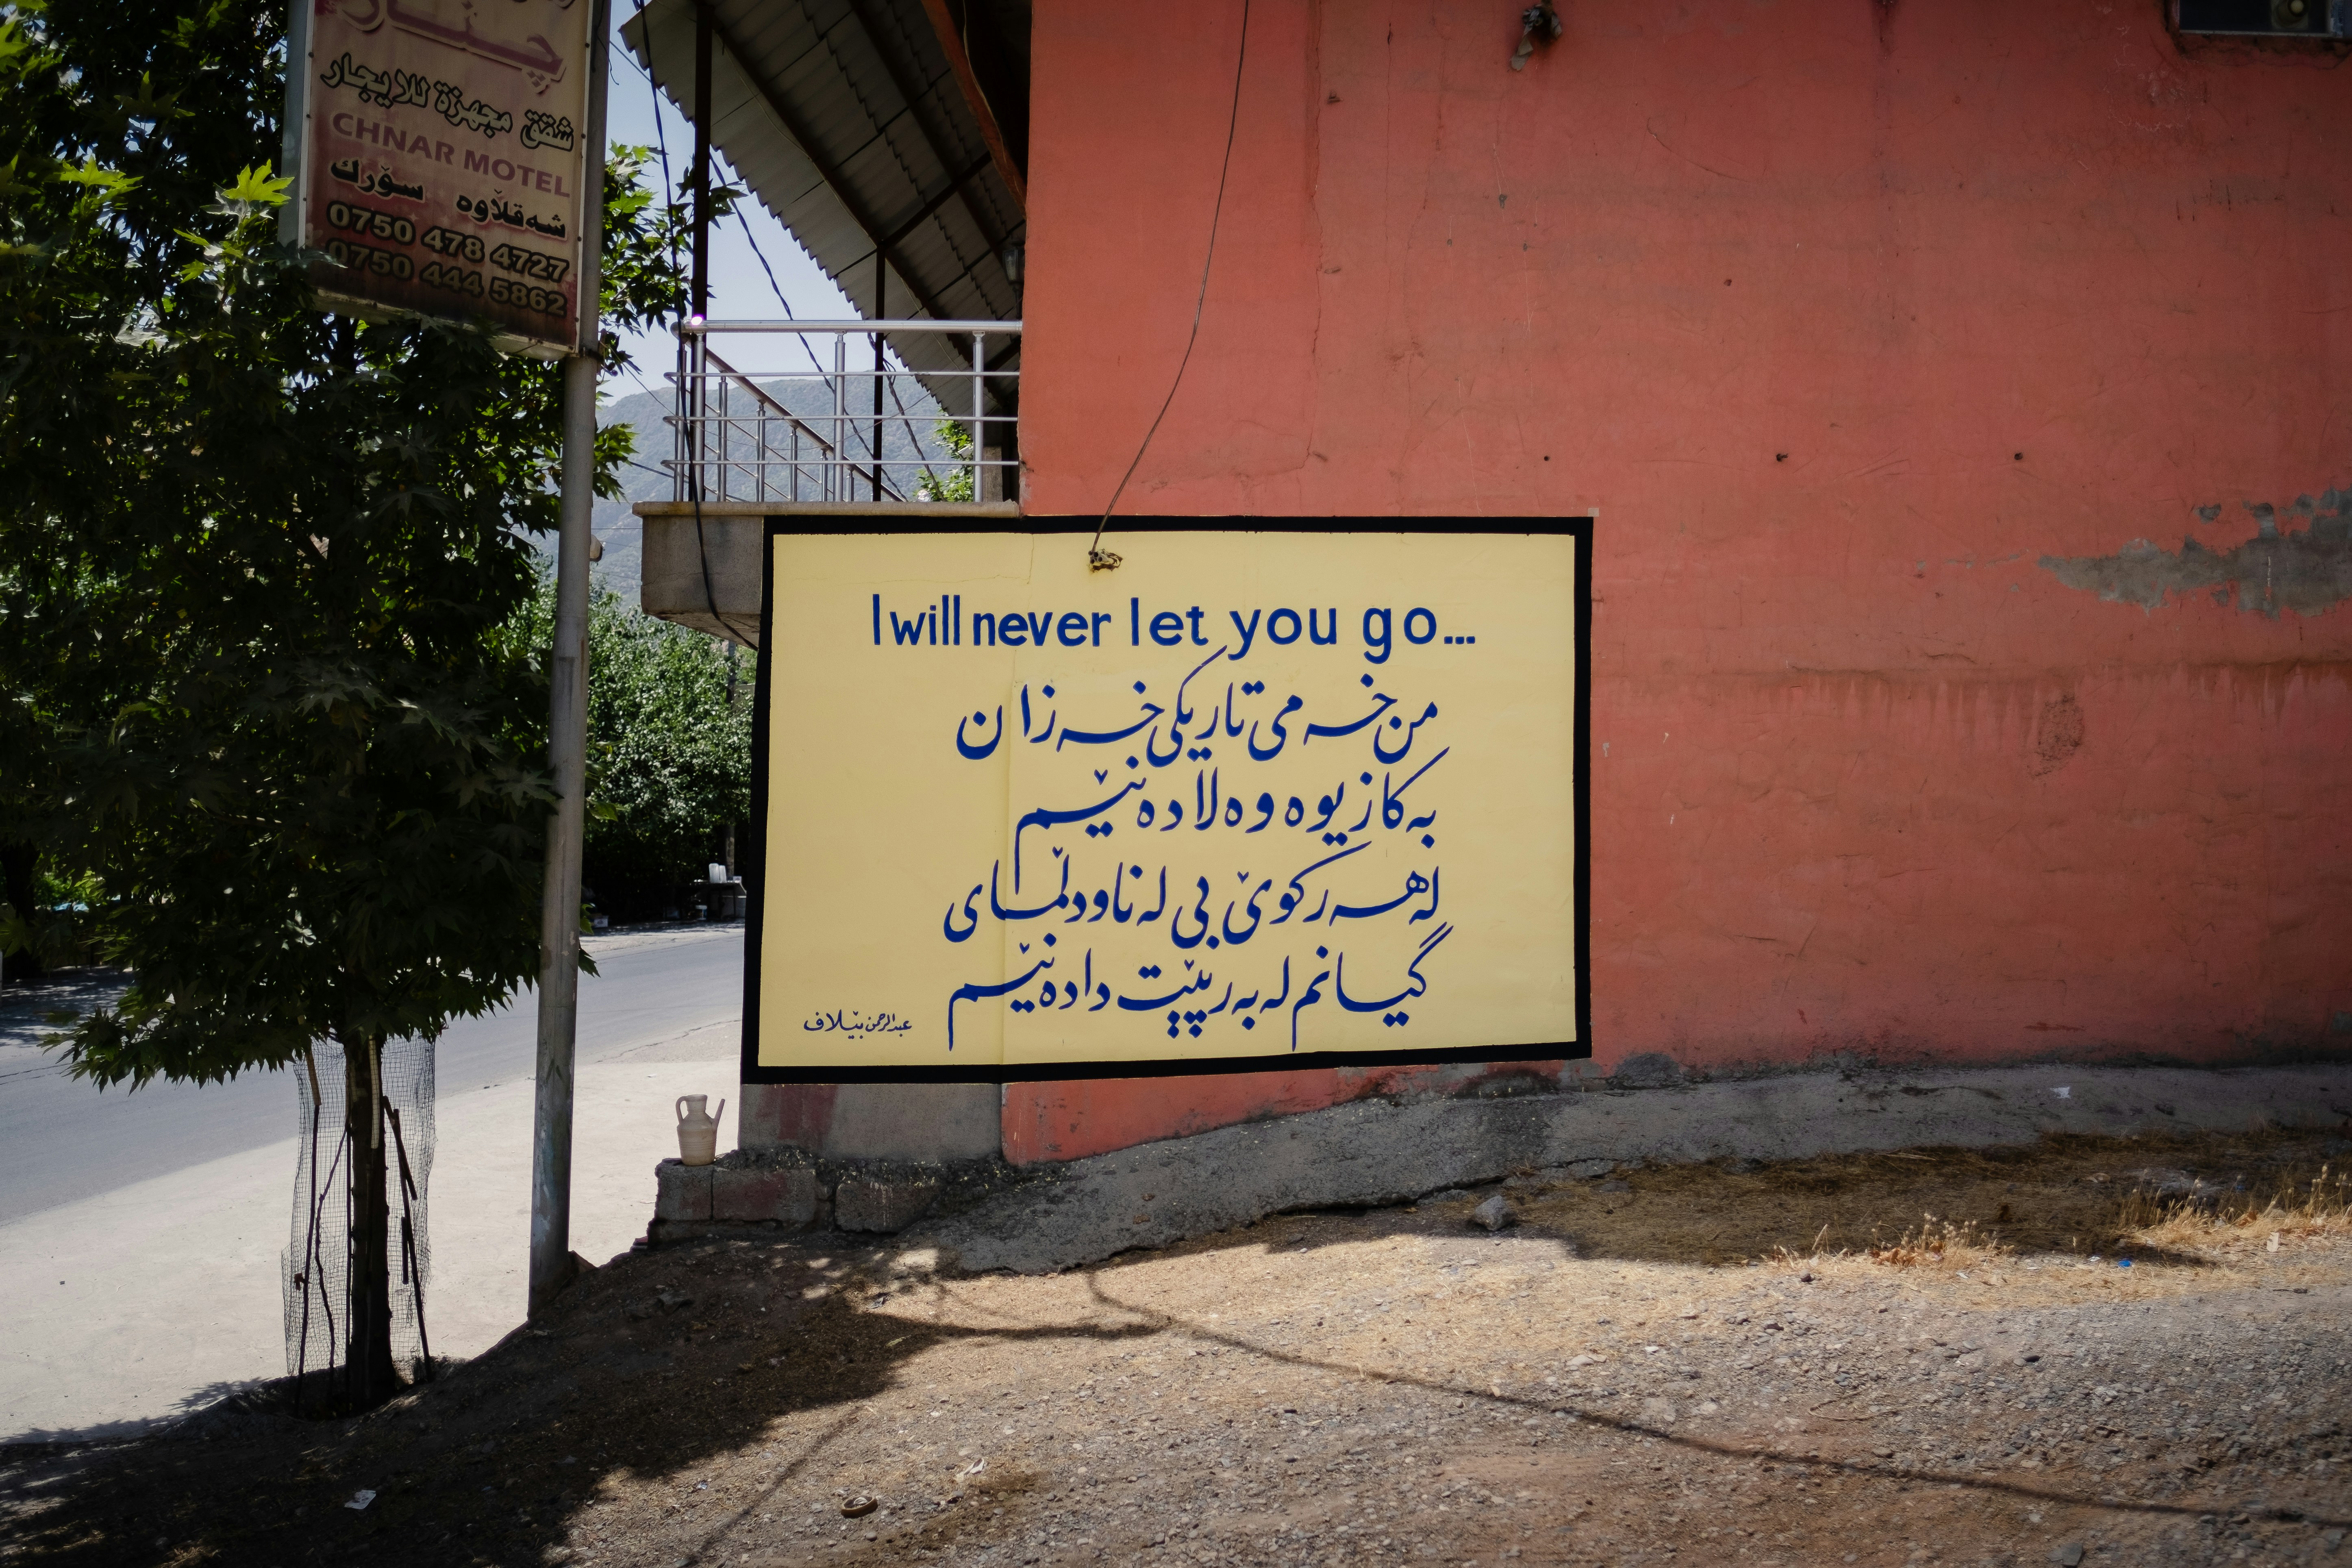 چنار
شقق مجهزة للايجار
CHNAR MOTEL
شەقڵاوە سۆرك
0750 478 4727
0750 444 5862
I will never let you go...
من خەمی تاریکی خەزان
بەکازیوە وەلادەنێم
لەهەرکوێ بی لەناودڵمای
گیانم لەبەرپێت دادەنێم
عبدالرحمن بێلاف